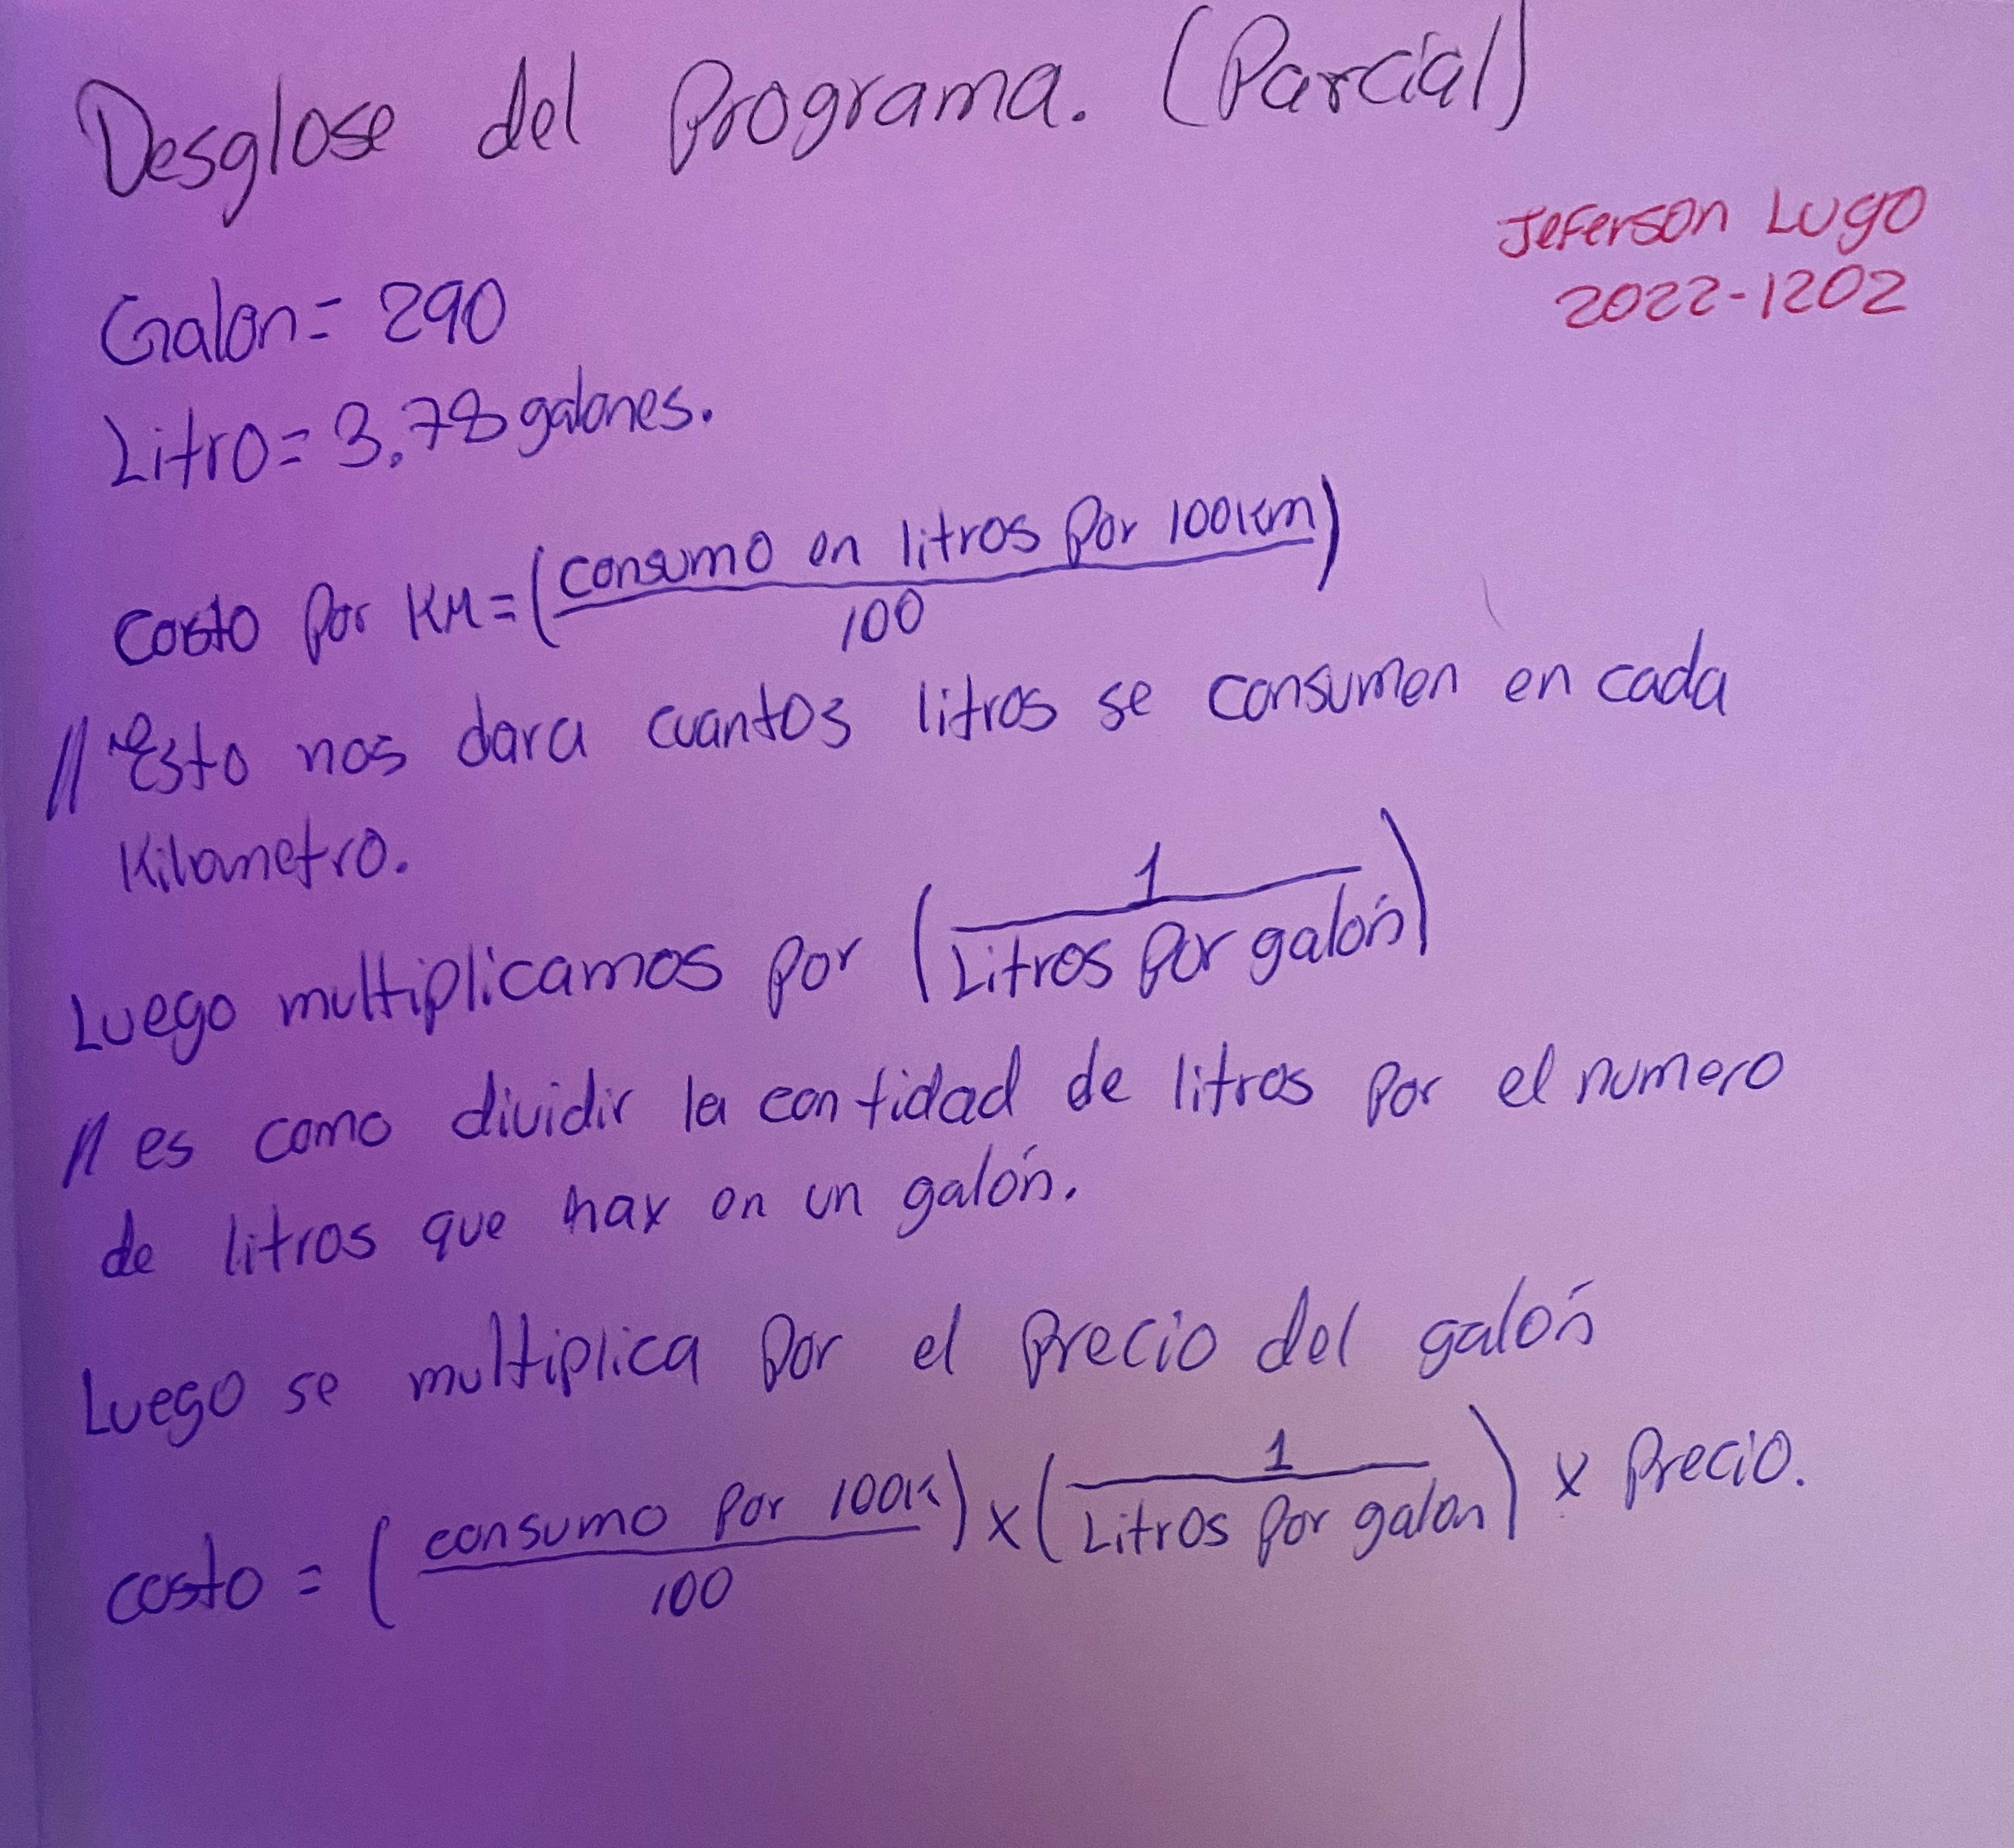 Desglose del Programa. (Parcial)
Jeferson Lugo
2022-1202
Galon= 290
Litro= 3.78 galones.
costo Por KM= (consumo en litros Por 100km / 100)
// Esto nos dara cuantos litros se consumen en cada
Kilometro.
Luego multiplicamos por (1 / Litros Por galón)
// es como dividir la cantidad de litros Por el numero
de litros que hay en un galón.
Luego se multiplica Por el Precio del galón
costo = (consumo Por 100K / 100) x (1 / Litros Por galon) x Precio.